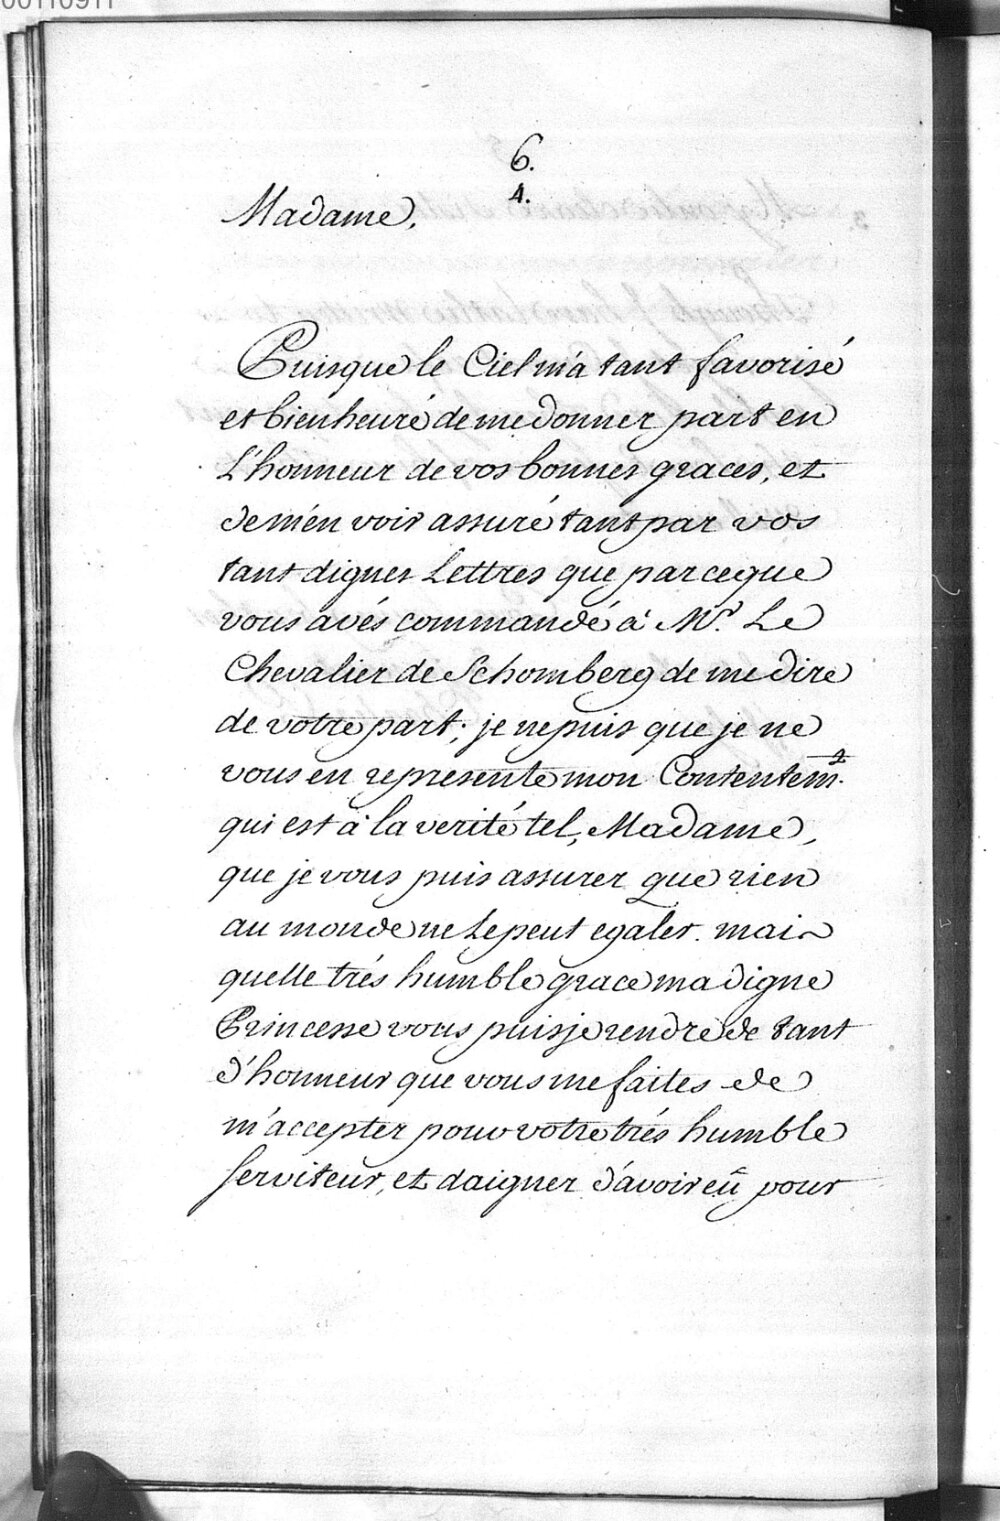 00110911
6.
4.
Madame,
Puisque le Ciel m'a tant favorisé
et bienheuré de me donner part en
L'honneur de vos bonnes graces, et
de m'en voir assuré tant par vos
tant dignes Lettres que par ce que
vous avés commandé à Mr. Le
Chevalier de Schomberg de me dire
de votre part; je ne puis que je ne
vous en represente mon Contentemt.
qui est à la verité tel, Madame,
que je vous puis assurer que rien
au monde ne Le peut egaler. mais
quelle trés humble grace ma digne
Princesse vous puis je rendre de tant
d'honneur que vous me faites de
m'accepter pour votre trés humble
serviteur, et daigner d'avoir eû pour